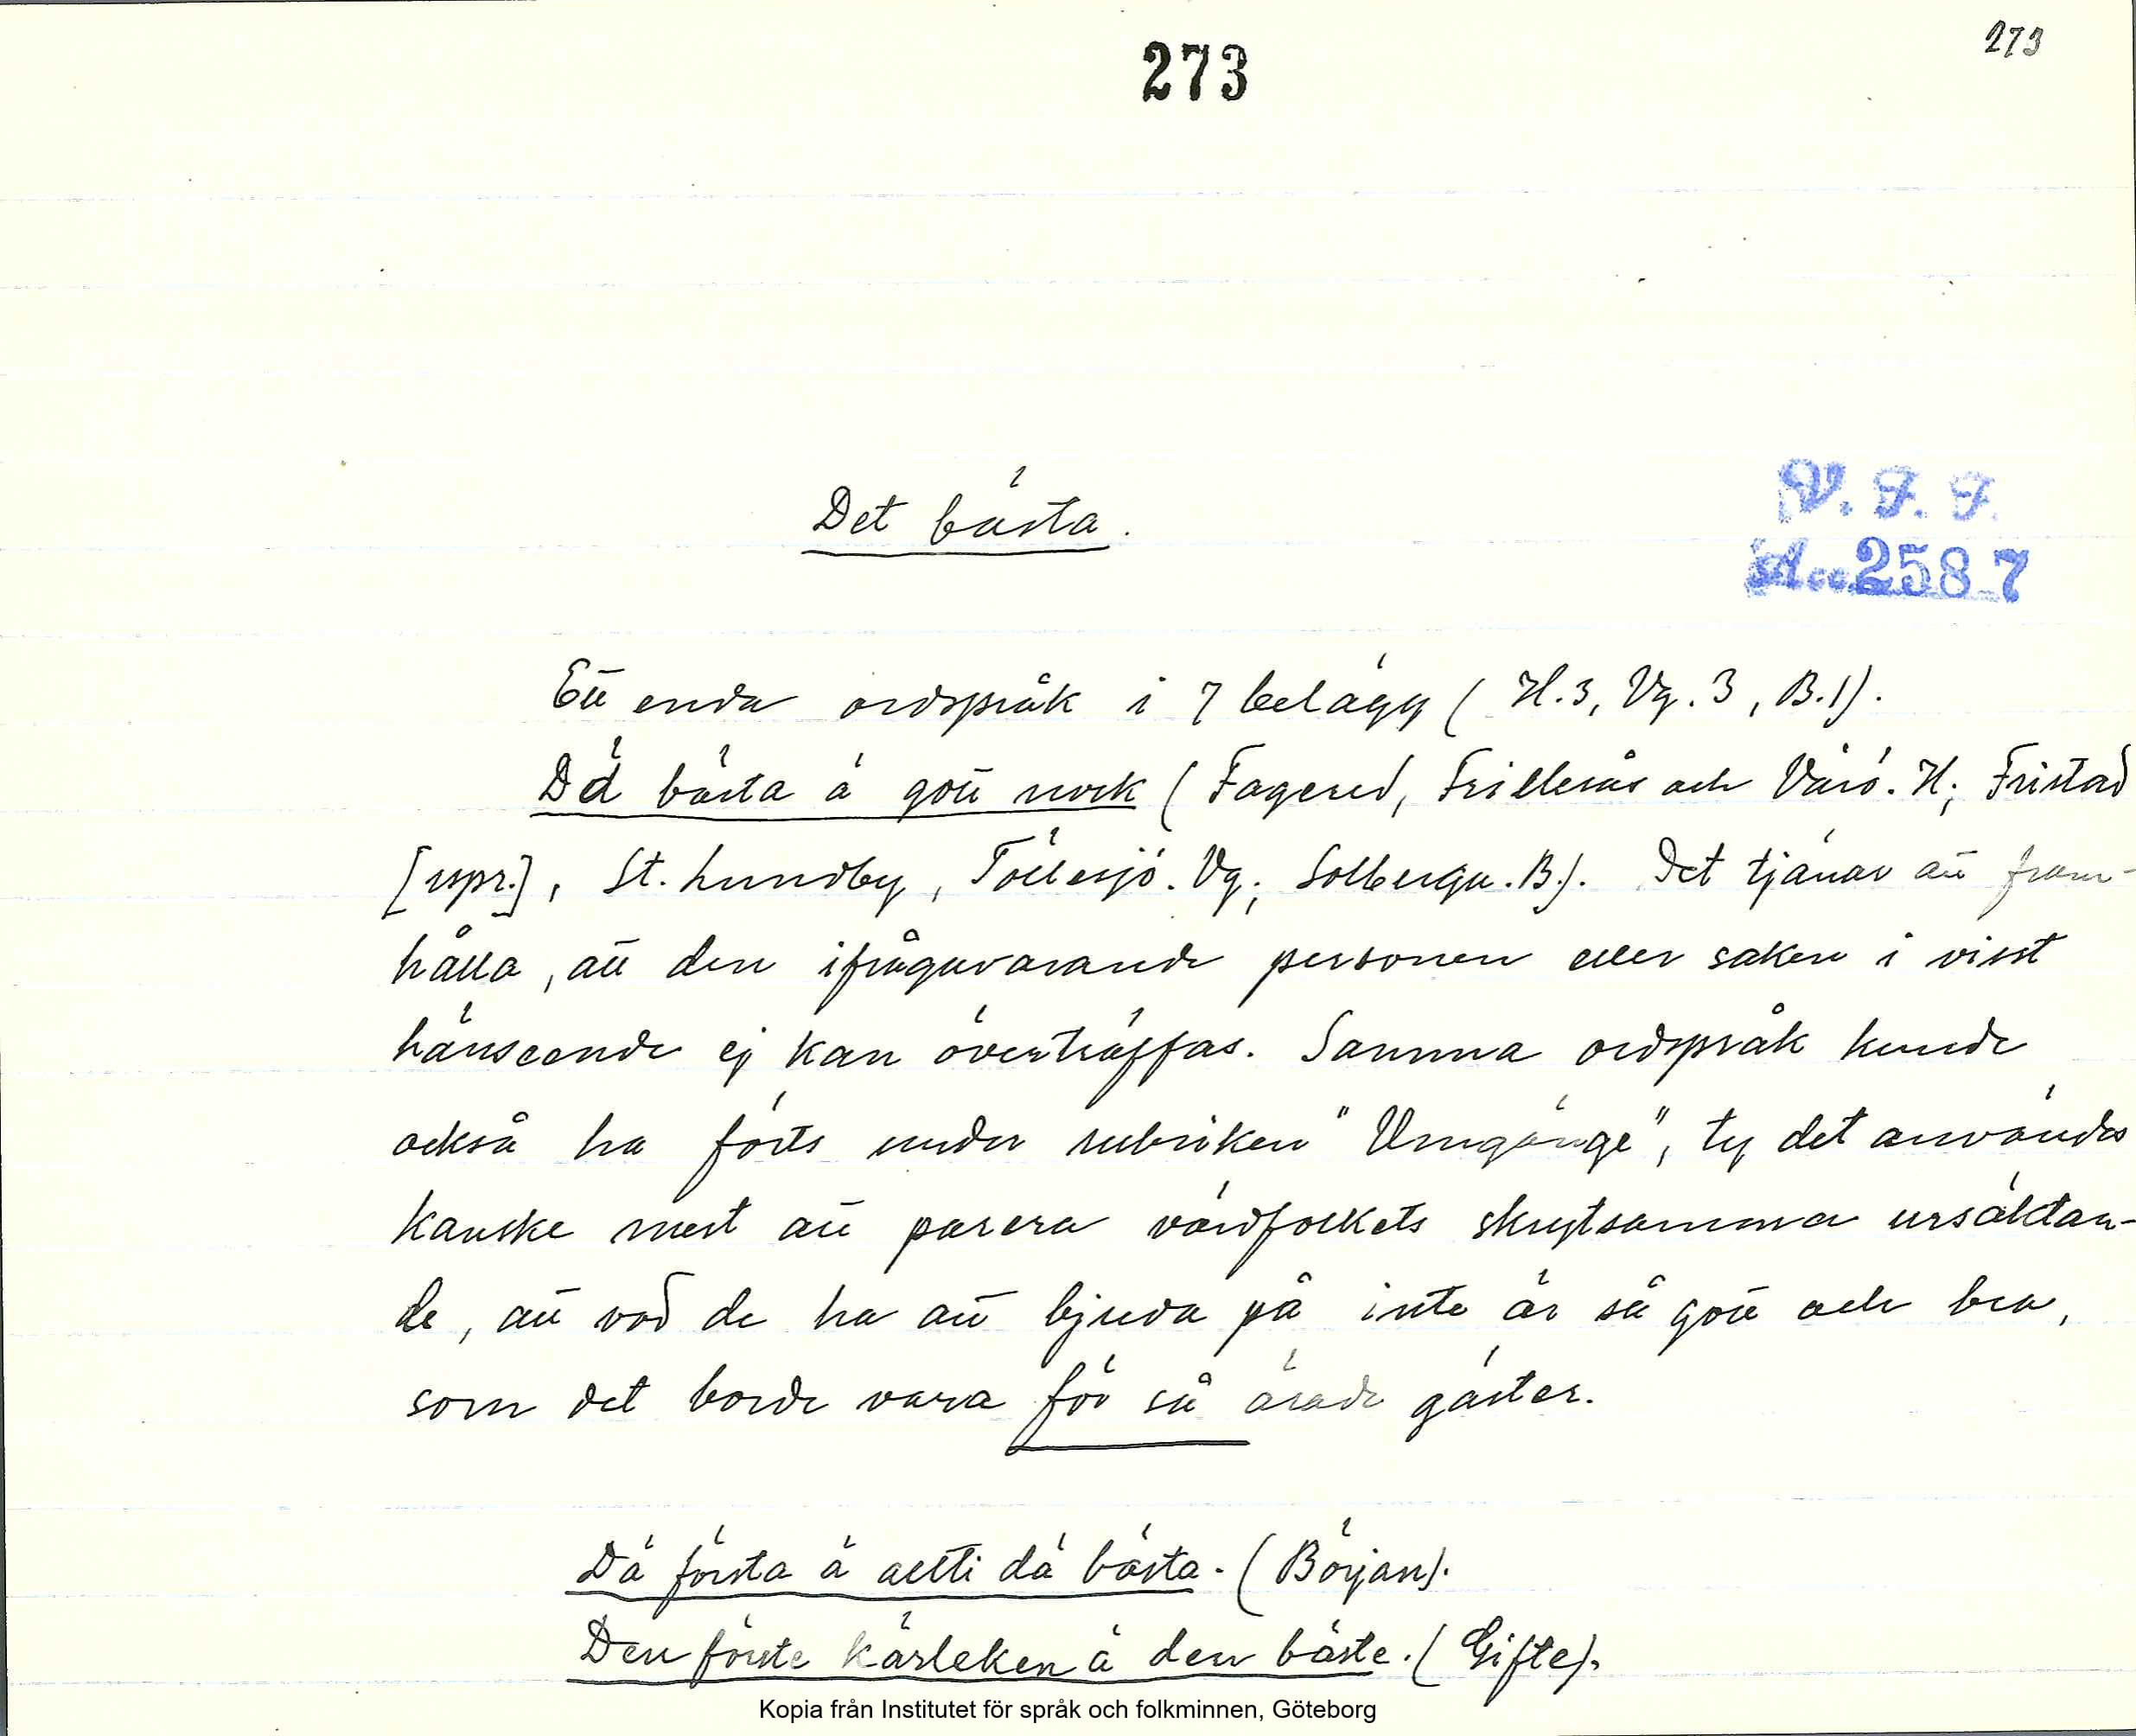 273
273
Det bästa.
V. F. F.
Acc. 2587
Ett enda ordspråk i 7 belägg (H.3, Vg.3, B.1).
Dä bästa ä gott nock (Fagered, Frillesås och Värö. H; Fristad
[uppr.], St. Lundby, Töllesjö. Vg; Solberga. B.). Det tjänar att fram-
hålla, att den ifrågavarande personen eller saken i visst
hänseende ej kan överträffas. Samma ordspråk kunde
också ha förts under rubriken "Umgänge", ty det användes
kanske mest att parera värdfolkets skrytsamma ursäktan-
de, att vad de ha att bjuda på inte är så gott och bra,
som det borde vara för så ärade gäster.
Dä första ä allti dä bästa. (Början).
Den förste kärleken ä den bäste. (Gifte).
Kopia från Institutet för språk och folkminnen, Göteborg